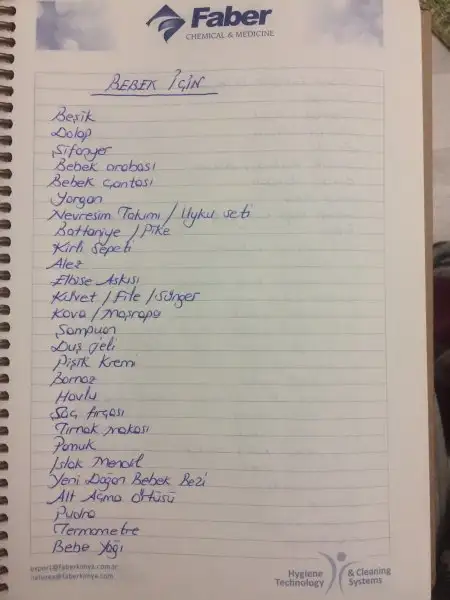 Faber
CHEMICAL & MEDICINE
BEBEK İÇİN
Beşik
Dolap
Şifonyer
Bebek arabası
Bebek çantası
Yorgan
Nevresim Takımı / Uyku seti
Battaniye / Pike
Kirli Sepeti
Alez
Elbise Askısı
Küvet / File / Sünger
Kova / Maşrapa
Şampuan
Duş jeli
Pişik Kremi
Bornoz
Havlu
Saç fırçası
Tırnak makası
Pamuk
Islak Mendil
Yeni Doğan Bebek Bezi
Alt Açma Örtüsü
Pudra
Termometre
Bebe Yağı
export@faberkimya.com.tr
Hygiene & Cleaning
Technology Systems